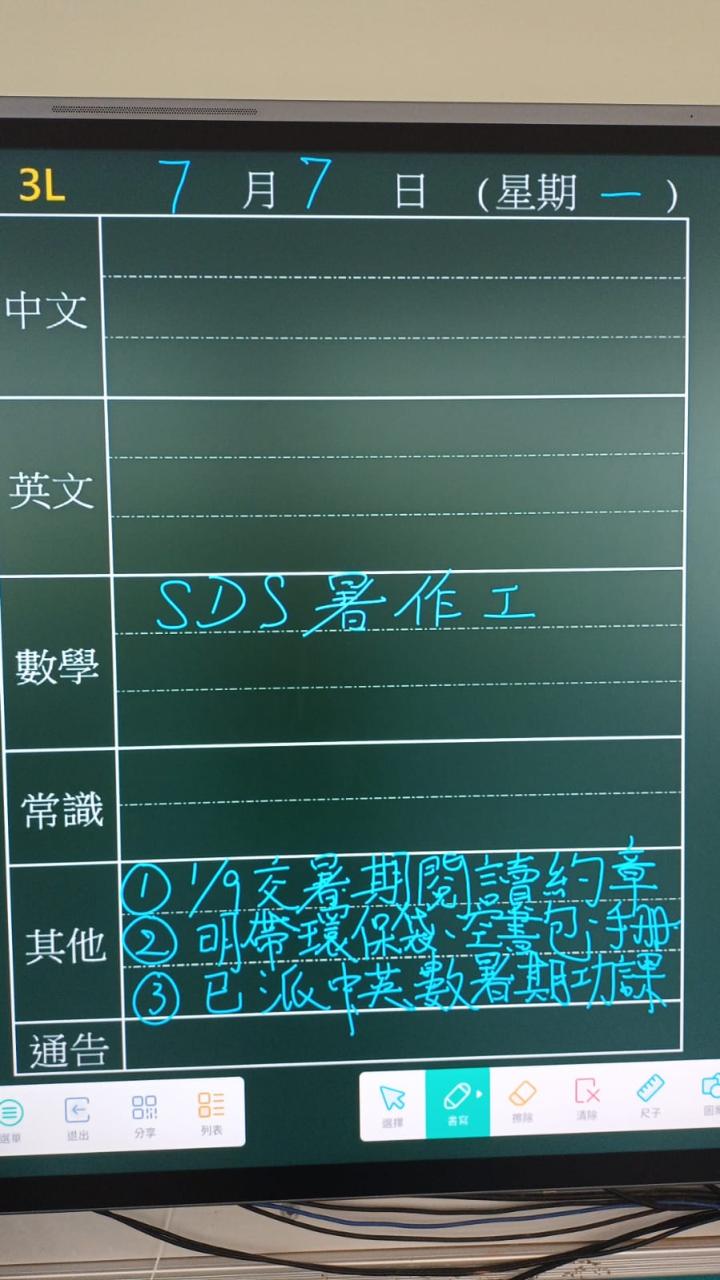 3L 7 月 7 日 (星期 一)
中文
英文
SDS 暑作工
數學
常識
① 1/9交暑期閱讀約章
其他 ② 明帶環保袋、空書包、手冊
③ 已派中英數暑期功課
通告
選單 退出 分享 列表 選擇 書寫 擦除 清除 尺子